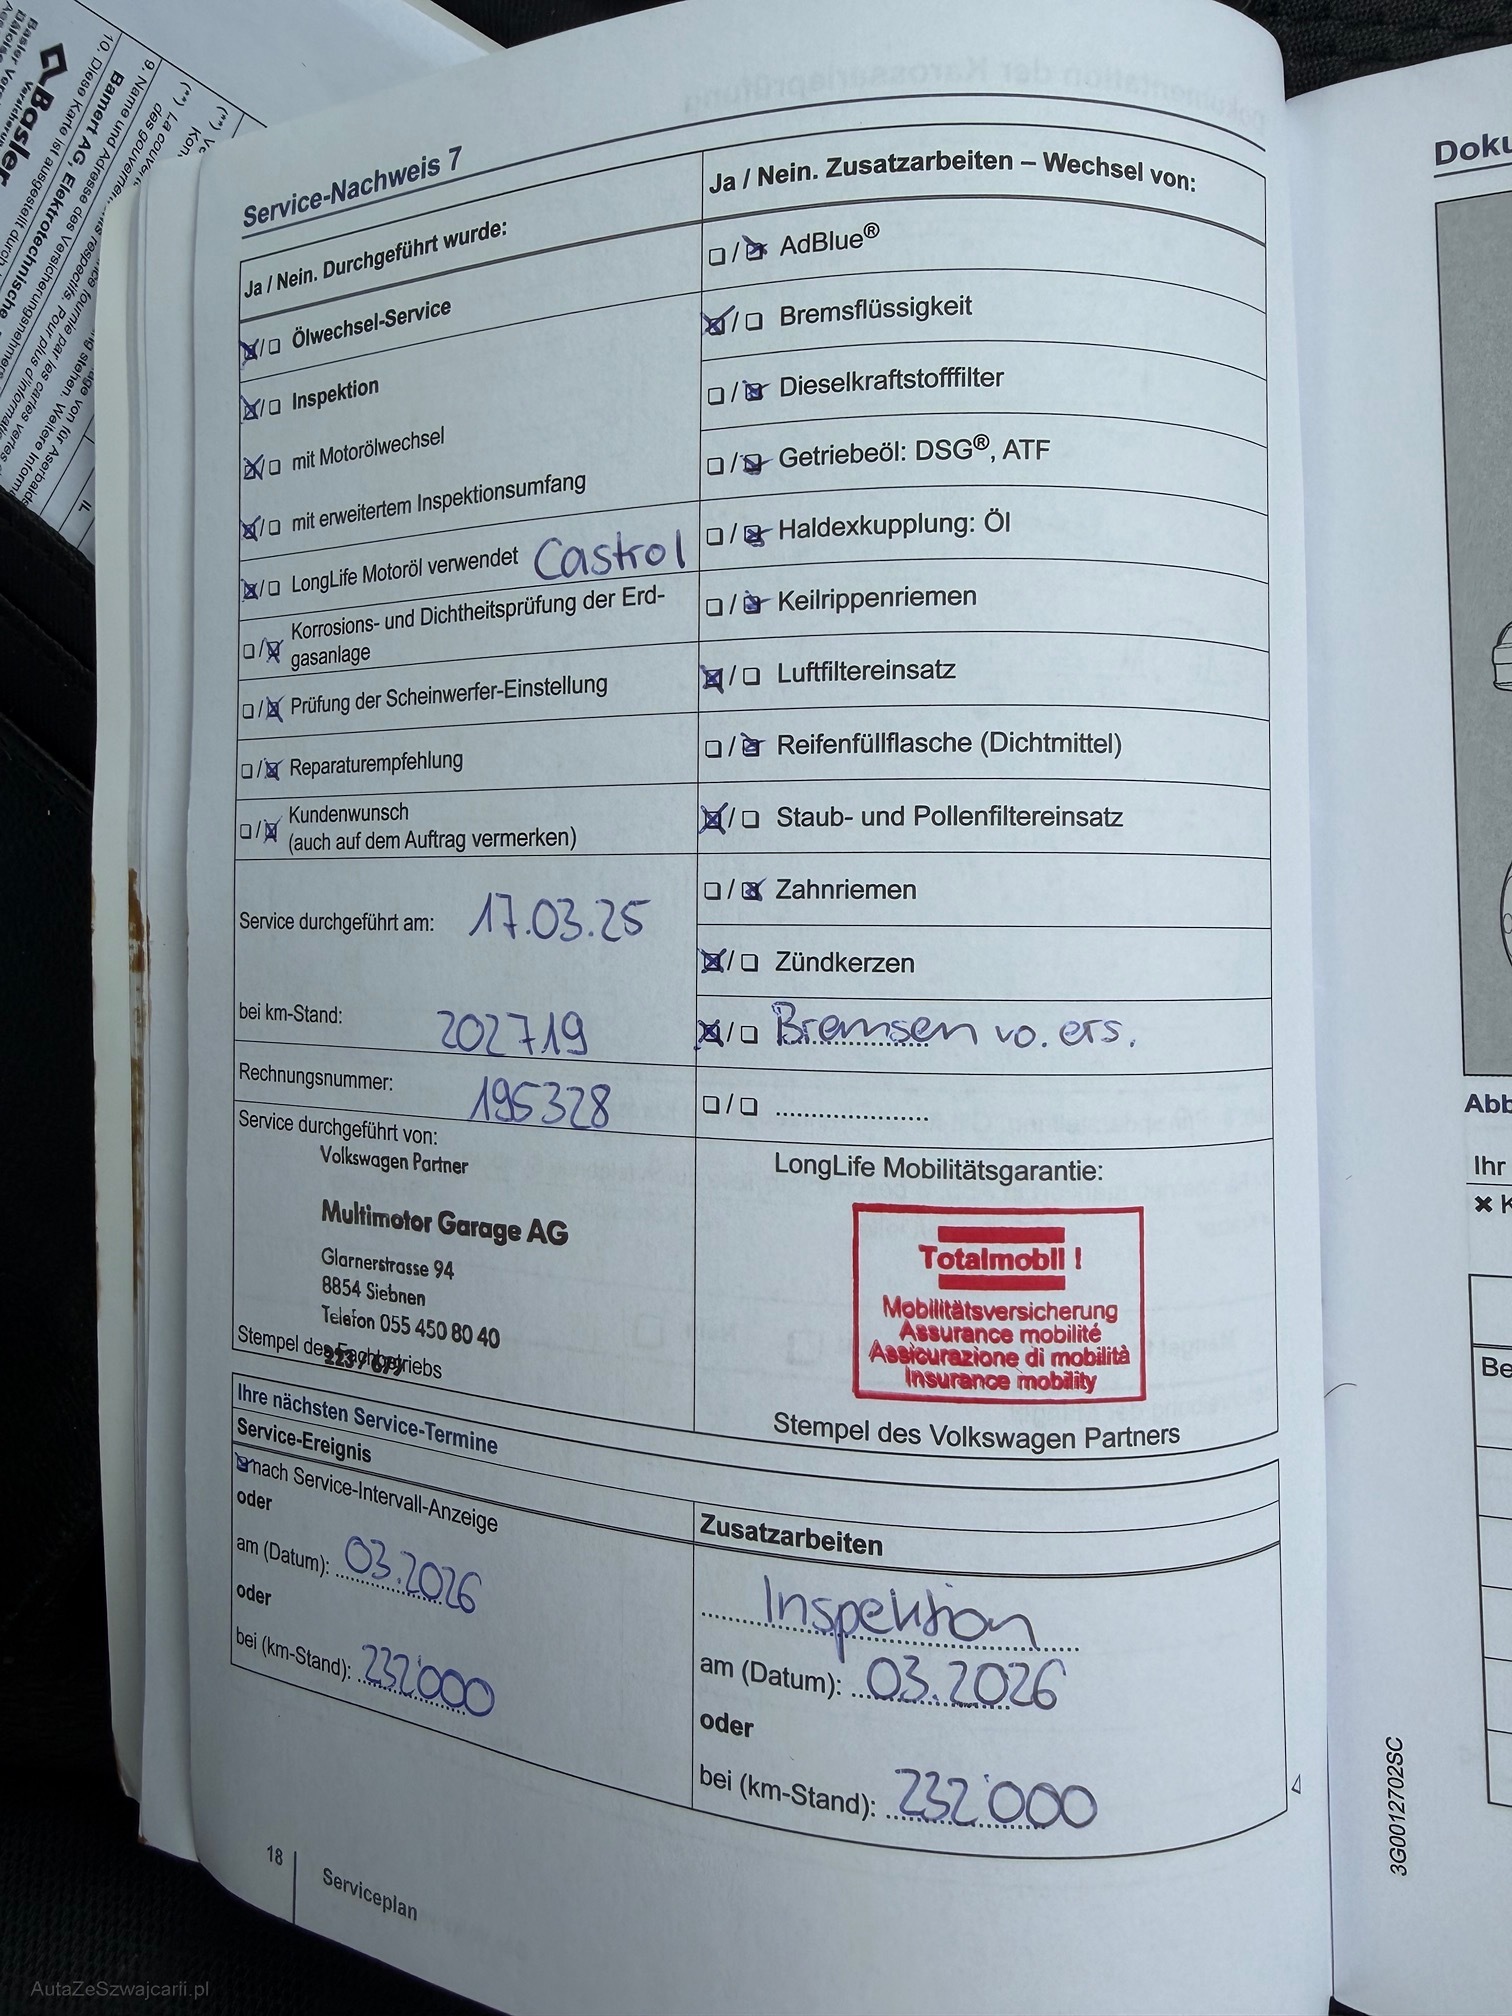 Service-Nachweis 7
Ja / Nein. Durchgeführt wurde:
Ölwechsel-Service
Inspektion
mit Motorölwechsel
mit erweitertem Inspektionsumfang
LongLife Motoröl verwendet Castrol
Korrosions- und Dichtheitsprüfung der Erd-
gasanlage
Prüfung der Scheinwerfer-Einstellung
Reparaturempfehlung
Kundenwunsch
(auch auf dem Auftrag vermerken)
Service durchgeführt am: 17.03.25
bei km-Stand: 202719
Rechnungsnummer: 195328
Service durchgeführt von:
Volkswagen Partner
Multimotor Garage AG
Glarnerstrasse 94
8854 Siebnen
Telefon 055 450 80 40
Stempel des Fachbetriebs
Ja / Nein. Zusatzarbeiten – Wechsel von:
AdBlue®
Bremsflüssigkeit
Dieselkraftstofffilter
Getriebeöl: DSG®, ATF
Haldexkupplung: Öl
Keilrippenriemen
Luftfiltereinsatz
Reifenfüllflasche (Dichtmittel)
Staub- und Pollenfiltereinsatz
Zahnriemen
Zündkerzen
Bremsen vo. ers.
LongLife Mobilitätsgarantie:
Totalmobil !
Mobilitätsversicherung
Assurance mobilité
Assicurazione di mobilità
Insurance mobility
Stempel des Volkswagen Partners
Ihre nächsten Service-Termine
Service-Ereignis
nach Service-Intervall-Anzeige
oder
am (Datum): 03.2026
oder
bei (km-Stand): 232'000
Zusatzarbeiten
Inspektion
am (Datum): 03.2026
oder
bei (km-Stand): 232'000
18
Serviceplan
3G0012702SC
Abb
Ihr
Be
Basler
Bamert AG, Elektrotechnische
AutaZeSzwajcarii.pl